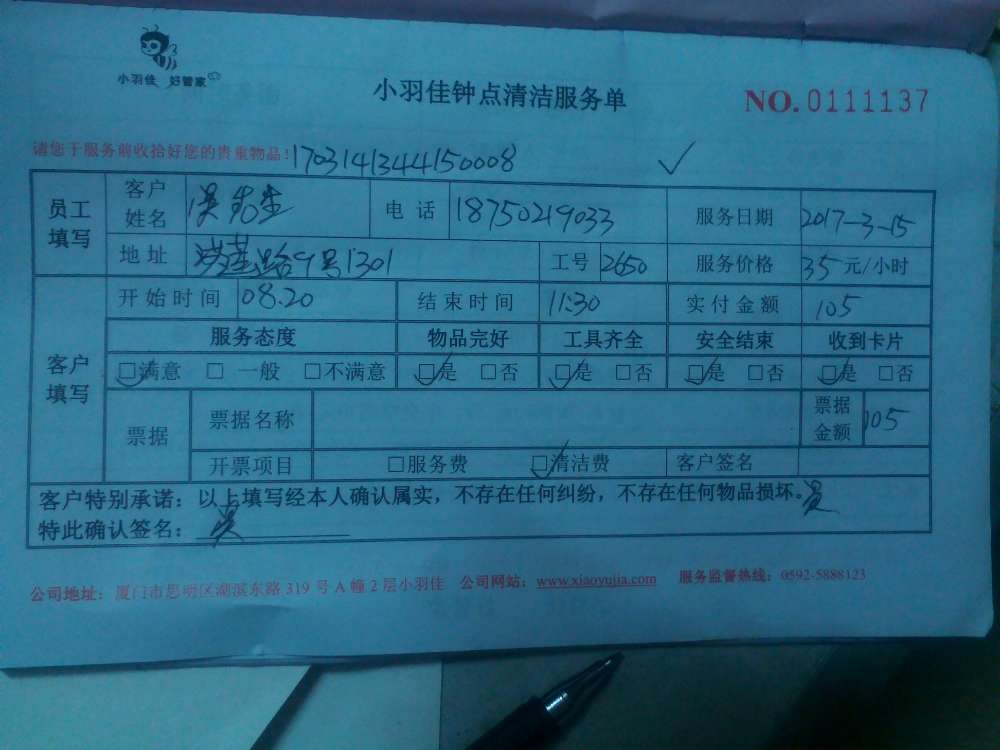 小羽佳 好管家
小羽佳钟点清洁服务单
NO. 0111137
请您于服务前收拾好您的贵重物品! 1703141344150008
员工填写 客户姓名 吴先生 电话 18750219033 服务日期 2017-3-15
地址 路9号1301 工号 2650 服务价格 35元/小时
客户填写 开始时间 08.20 结束时间 11:30 实付金额 105
服务态度 物品完好 工具齐全 安全结束 收到卡片
□满意 □一般 □不满意 □是 □否 □是 □否 □是 □否 □是 □否
票据 票据名称 票据金额 105
开票项目 □服务费 □清洁费 客户签名
客户特别承诺：以上填写经本人确认属实，不存在任何纠纷，不存在任何物品损坏。吴
特此确认签名：吴
公司地址：厦门市思明区湖滨东路 319 号 A 幢 2 层小羽佳 公司网站：www.xiaoyujia.com 服务监督热线：0592-5888123